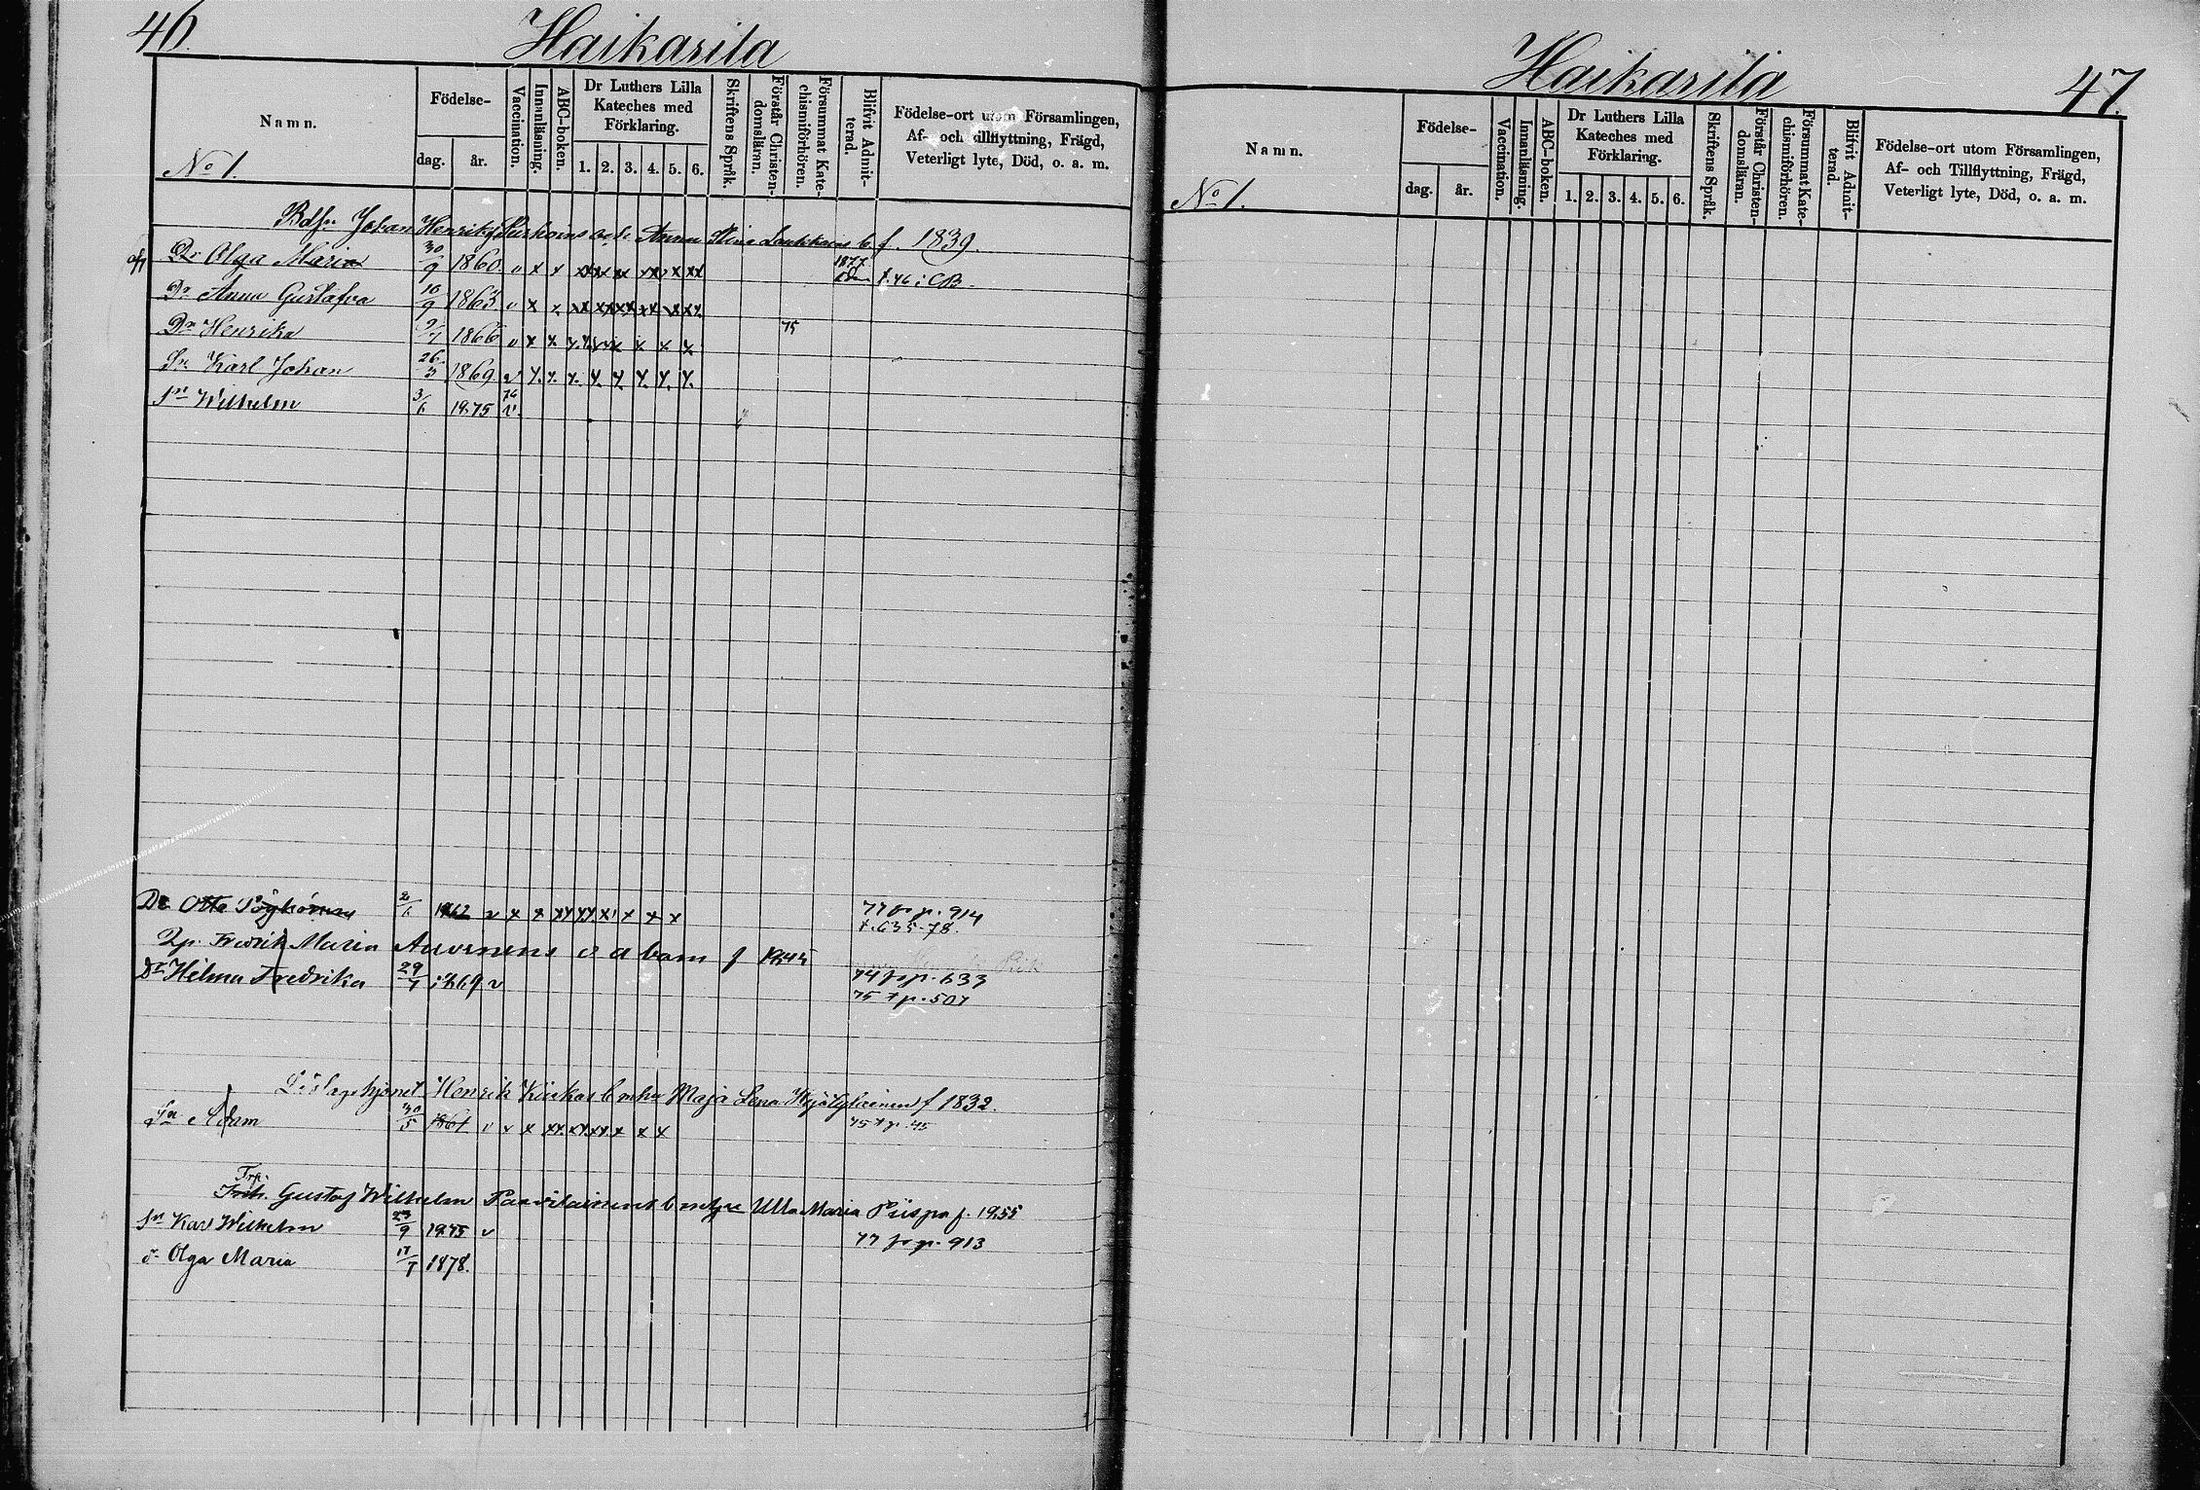 46.
Haikarila
Namn.
Födelse-
dag.
år.
Vaccination.
Innanläsning.
ABC-boken.
Dr Luthers Lilla
Kateches med
Förklaring.
1. 2. 3. 4. 5. 6.
Skriftens Språk.
Förstår Christen-
domsläran.
Försummat Kate-
chismiförhören.
Blifvit Admit-
terad.
Födelse-ort utom Församlingen,
Af- och Tillflyttning, Frägd,
Veterligt lyte, Död, o. a. m.
No 1.
Bdfn Johan Henrik och Anna Stina b. f. 1839.
Dr Olga Maria 30/9 1860 v x x 1877
Dr Anna Gustafva 10/9 1863 v x x
Dr Henrika 1866 v x x 75
Sn Karl Johan 26/3 1869 v
Sn Wilhelm 3/6 1875 76 v.
Dr Otto 1862 v x x 77 fr p. 914
t. 635-78.
Fredrik Maria b barn f 1845
Dr Hilma Fredrika 29/7 1869 v 74 fr p. 633
75 t p. 507
Henrik Maja Lena f 1832.
Sn Adam 30/5 1861 v x x 75 t p. 45
Trp.
Gustaf Wilhelm Paavilainens b m hu Ulla Maria Piispa f. 1855
Sn Karl Wilhelm 23/9 1875 v 77 fr p. 913
d. Olga Maria 17/7 1878.
Haikarila
47.
Namn.
Födelse-
dag.
år.
Vaccination.
Innanläsning.
ABC-boken.
Dr Luthers Lilla
Kateches med
Förklaring.
1. 2. 3. 4. 5. 6.
Skriftens Språk.
Förstår Christen-
domsläran.
Försummat Kate-
chismiförhören.
Blifvit Admit-
terad.
Födelse-ort utom Församlingen,
Af- och Tillflyttning, Frägd,
Veterligt lyte, Död, o. a. m.
No 1.